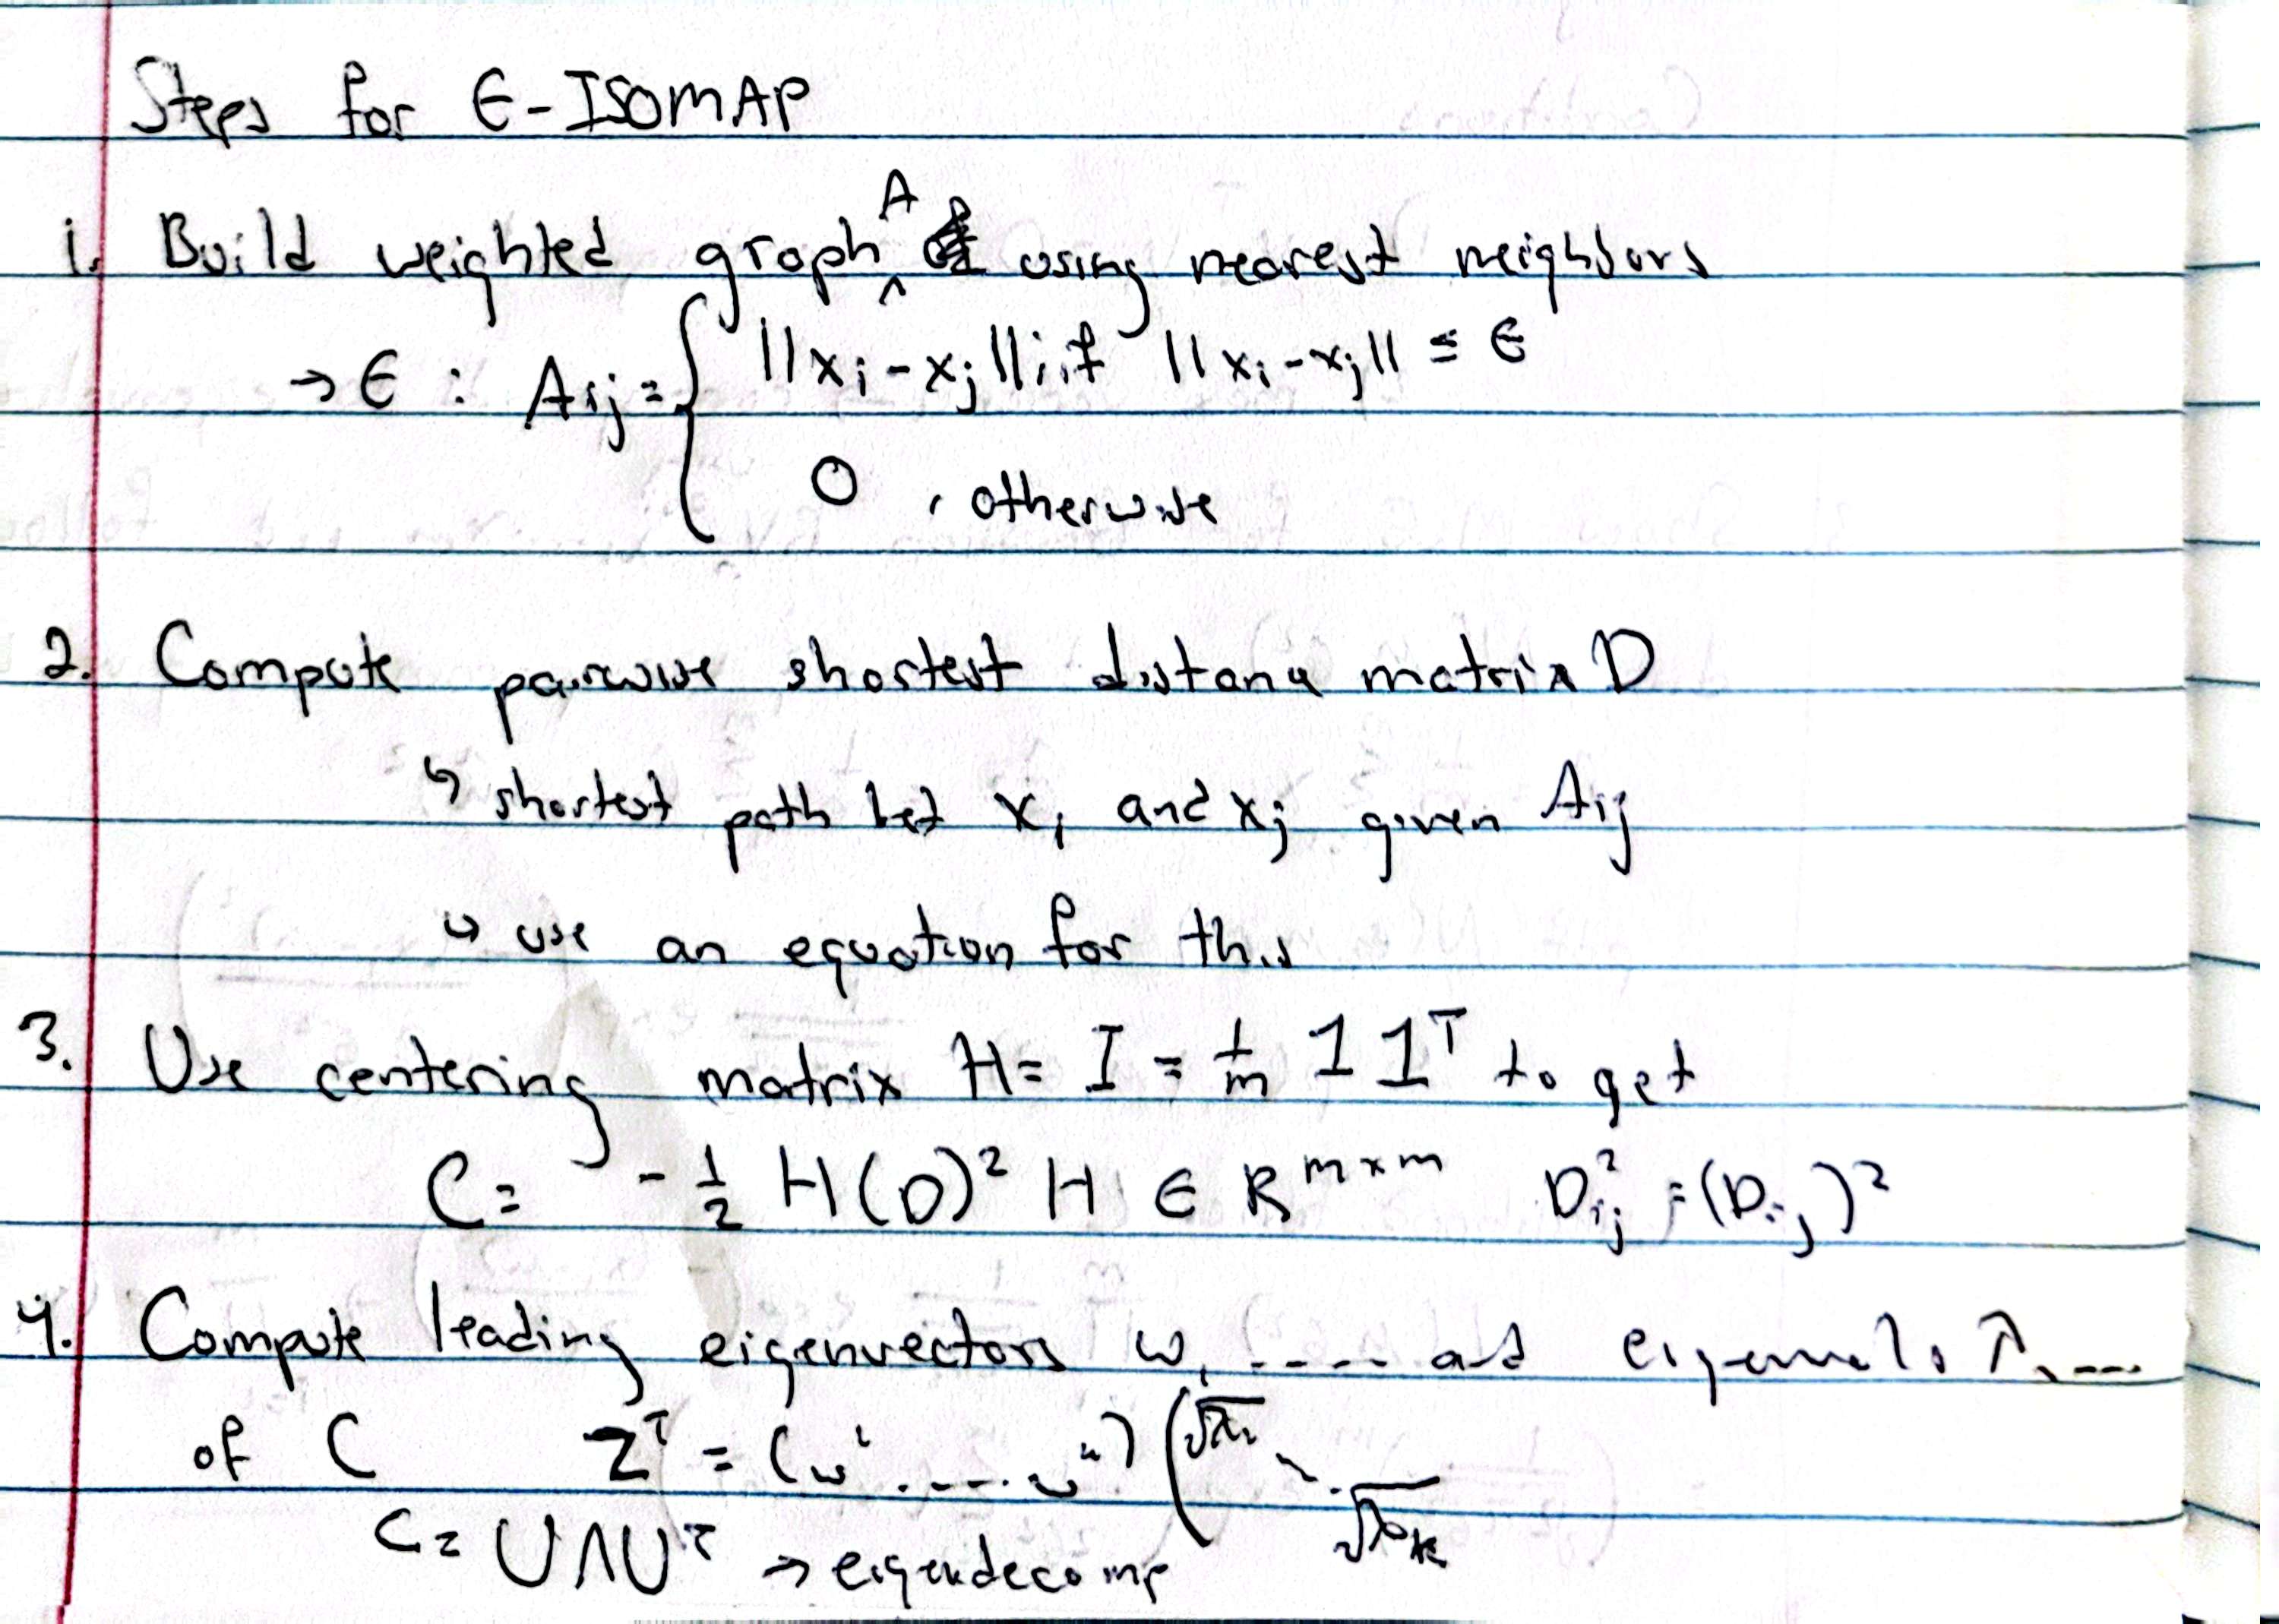 Steps for ϵ-ISOMAP
1. Build weighted graph A using nearest neighbors
→ ϵ : Aij = { ||xi - xj|| if ||xi - xj|| ≤ ϵ
0 , otherwise
2. Compute pairwise shortest distance matrix D
↳ shortest path bet xi and xj given Aij
↳ use an equation for this
3. Use centering matrix H = I = 1/m 1 1^T to get
C = -1/2 H(D)² H ∈ R^(m×m) D²ij = (Dij)²
4. Compute leading eigenvectors w, ---- and eigenvals λ, ---
of C Z^T = (w¹ ---- w) (√λ1 ⋱ √λk
C = UΛU^T → eigendecomp